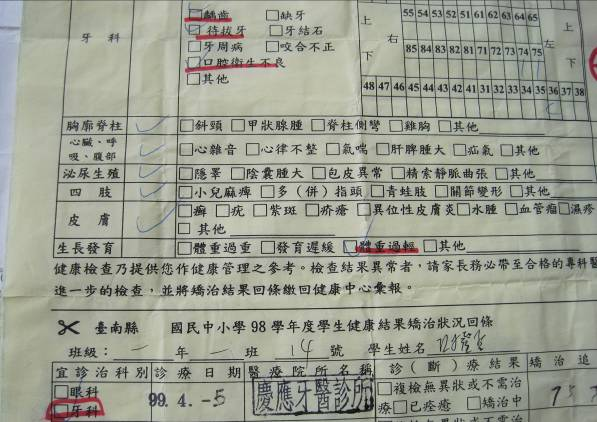 牙科
□齲齒 □缺牙
□待拔牙 □牙結石
□牙周病 □咬合不正
□口腔衛生不良
□其他
上 右 下
55 54 53 52 51 61 62 63 64 65
85 84 83 82 81 71 72 73 74 75
48 47 46 45 44 43 42 41 31 32 33 34 35 36 37 38
上 左 下
胸廓脊柱 □斜頸 □甲狀腺腫 □脊柱側彎 □雞胸 □其他
心臟、呼吸、腹部 □心雜音 □心律不整 □氣喘 □肝脾腫大 □疝氣 □其他
泌尿生殖 □隱睪 □陰囊腫大 □包皮異常 □精索靜脈曲張 □其他
四肢 □小兒麻痺 □多(併)指頭 □青蛙肢 □關節變形 □其他
皮膚 □癬 □疣 □紫斑 □疥瘡 □異位性皮膚炎 □水腫 □血管瘤 □濕疹
□其他
生長發育 □體重過重 □發育遲緩 □體重過輕 □其他
健康檢查乃提供您作健康管理之參考。檢查結果異常者,請家長務必帶至合格的專科醫
進一步的檢查,並將矯治結果回條繳回健康中心彙報。
臺南縣 國民中小學98學年度學生健康結果矯治狀況回條
班級：一年一班 14號 學生姓名
宜診治科別 診療日期 醫療院所名稱 診(斷)療結果 矯治追
□眼科
□牙科
99.4.-5
慶應牙醫診所
□複檢無異狀或不需治
療□已痊癒 □矯治中
□複檢無異狀或不需治